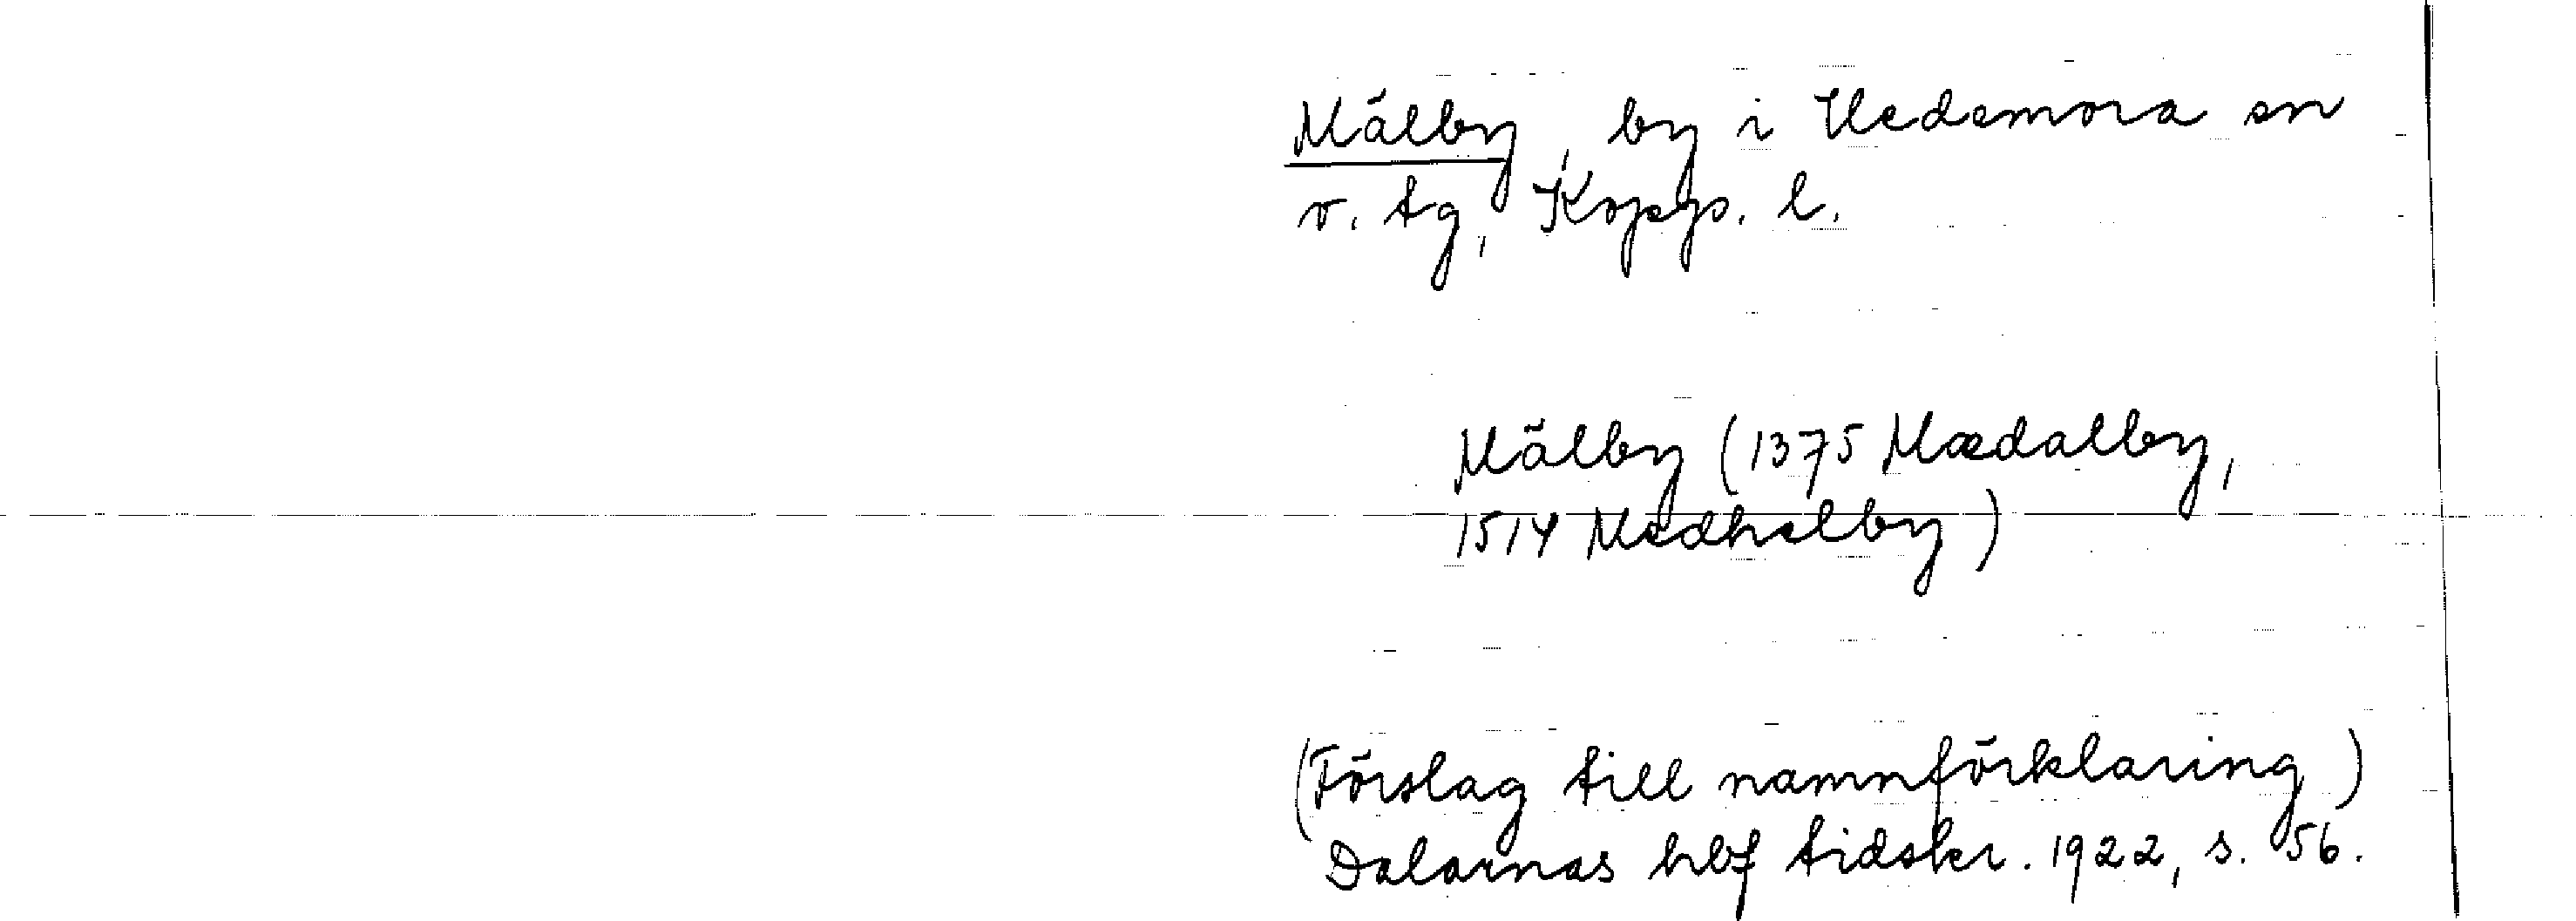 Mälby, by i Hedemora sn
v. tg, Koppb. l.
Mälby (1375 Mædalby,
1514 Medhelby)
(Förslag till namnförklaring)
Dalarnas hbf tidskr. 1922, s. 56.